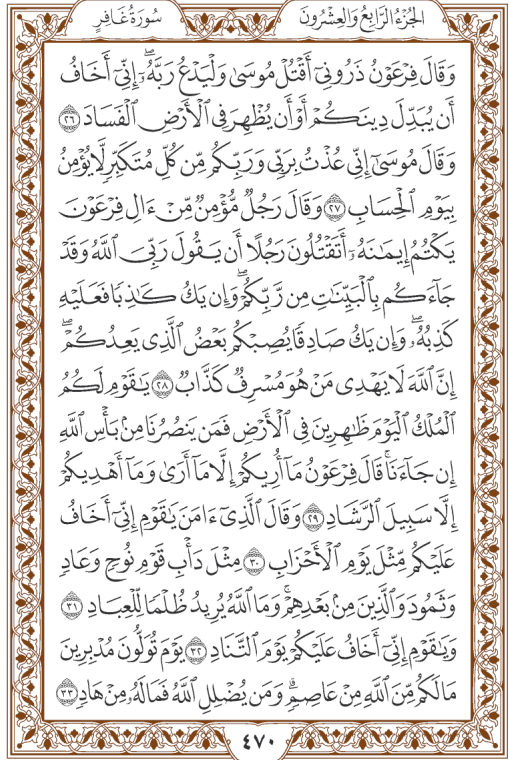 سُورَةُ غَافِرٍ
الجُزْءُ الرَّابِعُ وَالعِشْرُونَ
وَقَالَ فِرْعَوْنُ ذَرُونِىٓ أَقْتُلْ مُوسَىٰ وَلْيَدْعُ رَبَّهُۥٓ ۖ إِنِّىٓ أَخَافُ
أَن يُبَدِّلَ دِينَكُمْ أَوْ أَن يُظْهِرَ فِى ٱلْأَرْضِ ٱلْفَسَادَ ٢٦
وَقَالَ مُوسَىٰٓ إِنِّى عُذْتُ بِرَبِّى وَرَبِّكُم مِّن كُلِّ مُتَكَبِّرٍ لَّا يُؤْمِنُ
بِيَوْمِ ٱلْحِسَابِ ٢٧ وَقَالَ رَجُلٌ مُّؤْمِنٌ مِّنْ ءَالِ فِرْعَوْنَ
يَكْتُمُ إِيمَـٰنَهُۥٓ أَتَقْتُلُونَ رَجُلًا أَن يَقُولَ رَبِّىَ ٱللَّهُ وَقَدْ
جَآءَكُم بِٱلْبَيِّنَـٰتِ مِن رَّبِّكُمْ ۖ وَإِن يَكُ كَـٰذِبًا فَعَلَيْهِ
كَذِبُهُۥ ۖ وَإِن يَكُ صَادِقًا يُصِبْكُم بَعْضُ ٱلَّذِى يَعِدُكُمْ ۖ
إِنَّ ٱللَّهَ لَا يَهْدِى مَنْ هُوَ مُسْرِفٌ كَذَّابٌ ٢٨ يَـٰقَوْمِ لَكُمُ
ٱلْمُلْكُ ٱلْيَوْمَ ظَـٰهِرِينَ فِى ٱلْأَرْضِ فَمَن يَنصُرُنَا مِنۢ بَأْسِ ٱللَّهِ
إِن جَآءَنَا ۚ قَالَ فِرْعَوْنُ مَآ أُرِيكُمْ إِلَّا مَآ أَرَىٰ وَمَآ أَهْدِيكُمْ
إِلَّا سَبِيلَ ٱلرَّشَادِ ٢٩ وَقَالَ ٱلَّذِىٓ ءَامَنَ يَـٰقَوْمِ إِنِّىٓ أَخَافُ
عَلَيْكُم مِّثْلَ يَوْمِ ٱلْأَحْزَابِ ٣٠ مِثْلَ دَأْبِ قَوْمِ نُوحٍ وَعَادٍ
وَثَمُودَ وَٱلَّذِينَ مِنۢ بَعْدِهِمْ ۚ وَمَا ٱللَّهُ يُرِيدُ ظُلْمًا لِّلْعِبَادِ ٣١
وَيَـٰقَوْمِ إِنِّىٓ أَخَافُ عَلَيْكُمْ يَوْمَ ٱلتَّنَادِ ٣٢ يَوْمَ تُوَلُّونَ مُدْبِرِينَ
مَا لَكُم مِّنَ ٱللَّهِ مِنْ عَاصِمٍ ۗ وَمَن يُضْلِلِ ٱللَّهُ فَمَا لَهُۥ مِنْ هَادٍ ٣٣
٤٧٠